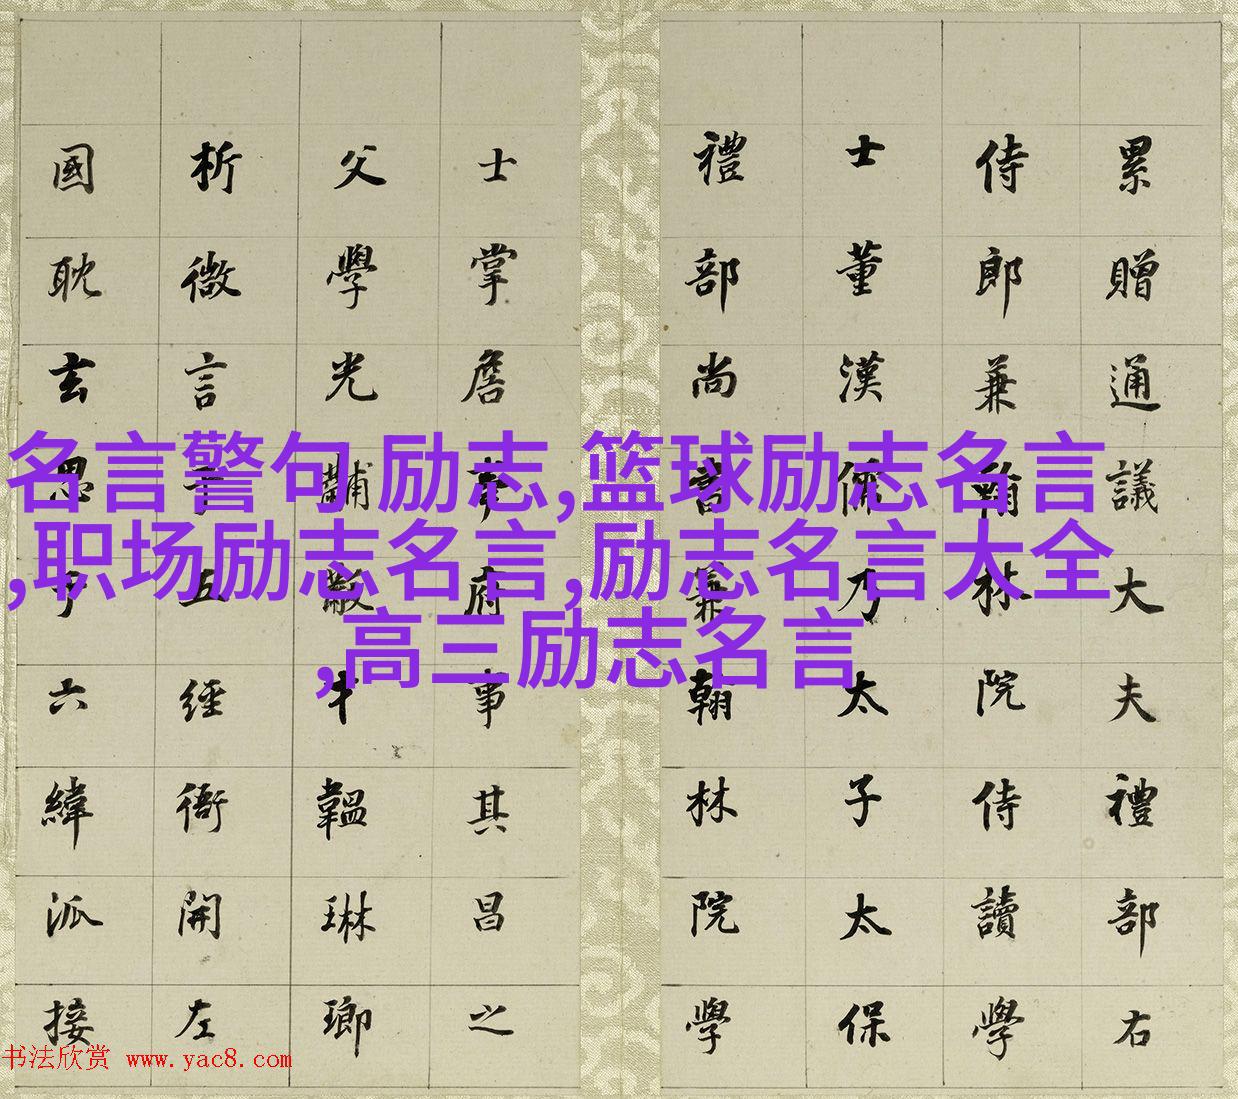 累贈通議大夫禮部右
侍郎兼翰林院侍讀學
士董漢儒乃太子太保
禮部尚書兼翰林院學
士掌詹事府事其昌之
父學光黼黻韞琳瑯
析微言于五經衜開左
國耽玄思于六緯派接
名言警句 励志,篮球励志名言
,职场励志名言,励志名言大全
,高三励志名言
书法欣赏 www.yac8.com